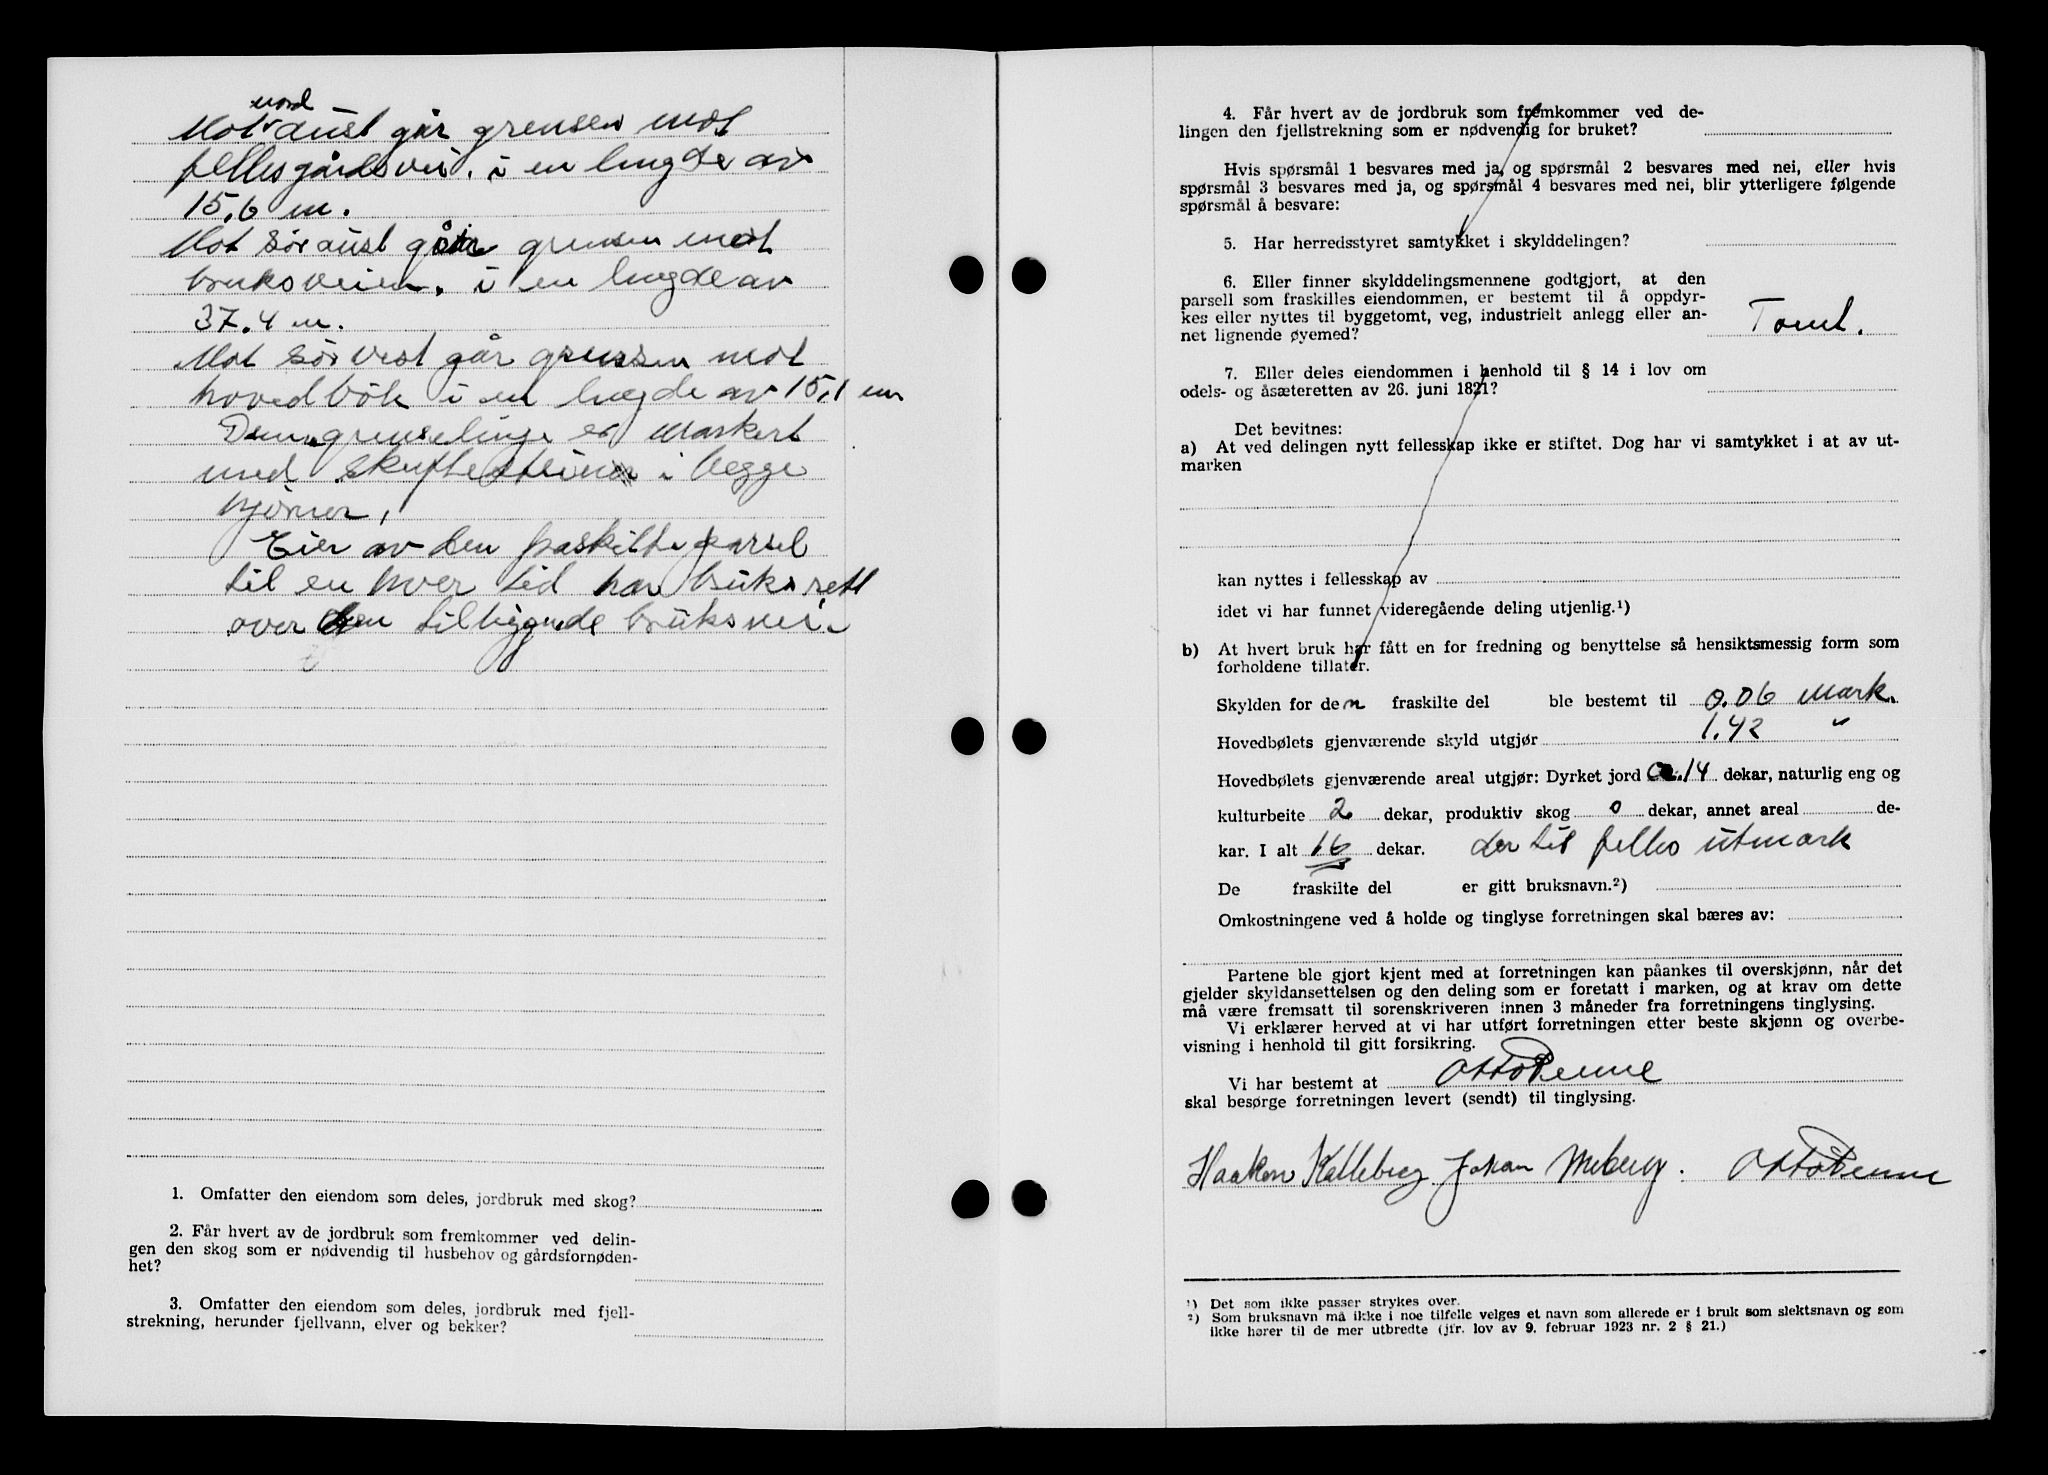 nord
Mot aust går grensen mot
felles gårdsvei. i en lengde av
15,6 m.
Mot sør aust går grensen mot
bruksveien. i en lengde av
37.4 m.
Mot sør vest går grensen mot
hovedbøle i en lengde av 15,1 m
Denne grenselinje er markert
med skiftesteiner i begge
hjørner.
Eier av den fraskilte parsel
til en hver tid har bruks rett
over den tilliggende bruksvei.
1. Omfatter den eiendom som deles, jordbruk med skog?
2. Får hvert av de jordbruk som fremkommer ved delin-
gen den skog som er nødvendig til husbehov og gårdsfornøden-
het?
3. Omfatter den eiendom som deles, jordbruk med fjell-
strekning, herunder fjellvann, elver og bekker?
4. Får hvert av de jordbruk som fremkommer ved de-
lingen den fjellstrekning som er nødvendig for bruket?
Hvis spørsmål 1 besvares med ja, og spørsmål 2 besvares med nei, eller hvis
spørsmål 3 besvares med ja, og spørsmål 4 besvares med nei, blir ytterligere følgende
spørsmål å besvare:
5. Har herredsstyret samtykket i skylddelingen?
6. Eller finner skylddelingsmennene godtgjort, at den
parsell som fraskilles eiendommen, er bestemt til å oppdyr-
kes eller nyttes til byggetomt, veg, industrielt anlegg eller an-
net lignende øyemed? Tomt.
7. Eller deles eiendommen i henhold til § 14 i lov om
odels- og åsæteretten av 26. juni 1821?
Det bevitnes:
a) At ved delingen nytt fellesskap ikke er stiftet. Dog har vi samtykket i at av ut-
marken
kan nyttes i fellesskap av
idet vi har funnet videregående deling utjenlig.¹)
b) At hvert bruk har fått en for fredning og benyttelse så hensiktsmessig form som
forholdene tillater.
Skylden for den fraskilte del ble bestemt til 0.06 Mark.
Hovedbølets gjenværende skyld utgjør 1.42 "
Hovedbølets gjenværende areal utgjør: Dyrket jord ca. 14 dekar, naturlig eng og
kulturbeite 2 dekar, produktiv skog 0 dekar, annet areal de-
kar. I alt 16 dekar. der til felles utmark
De fraskilte del er gitt bruksnavn.²)
Omkostningene ved å holde og tinglyse forretningen skal bæres av:
Partene ble gjort kjent med at forretningen kan påankes til overskjønn, når det
gjelder skyldansettelsen og den deling som er foretatt i marken, og at krav om dette
må være fremsatt til sorenskriveren innen 3 måneder fra forretningens tinglysing.
Vi erklærer herved at vi har utført forretningen etter beste skjønn og overbe-
visning i henhold til gitt forsikring.
Vi har bestemt at Otto Penne
skal besørge forretningen levert (sendt) til tinglysing.
Haakon Kalleberg Johan Meberg. Otto Penne
¹) Det som ikke passer strykes over.
²) Som bruksnavn må ikke i noe tilfelle velges et navn som allerede er i bruk som slektsnavn og som
ikke hører til de mer utbredte (jfr. lov av 9. februar 1923 nr. 2 § 21.)